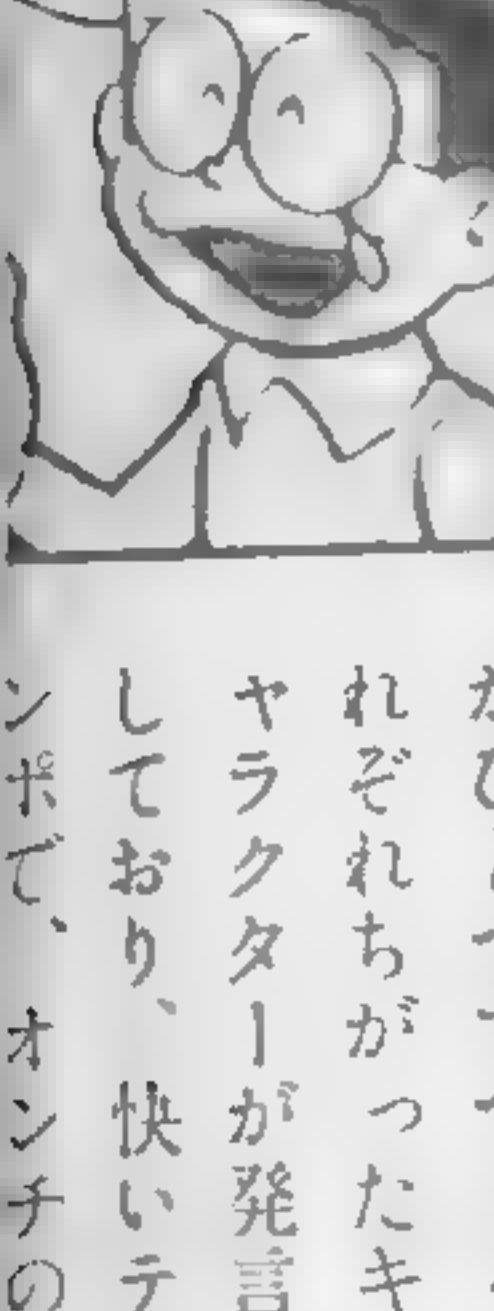 れぞれちがったキ
ャラクターが発言
しており、快いテ
ンポで、オンチの